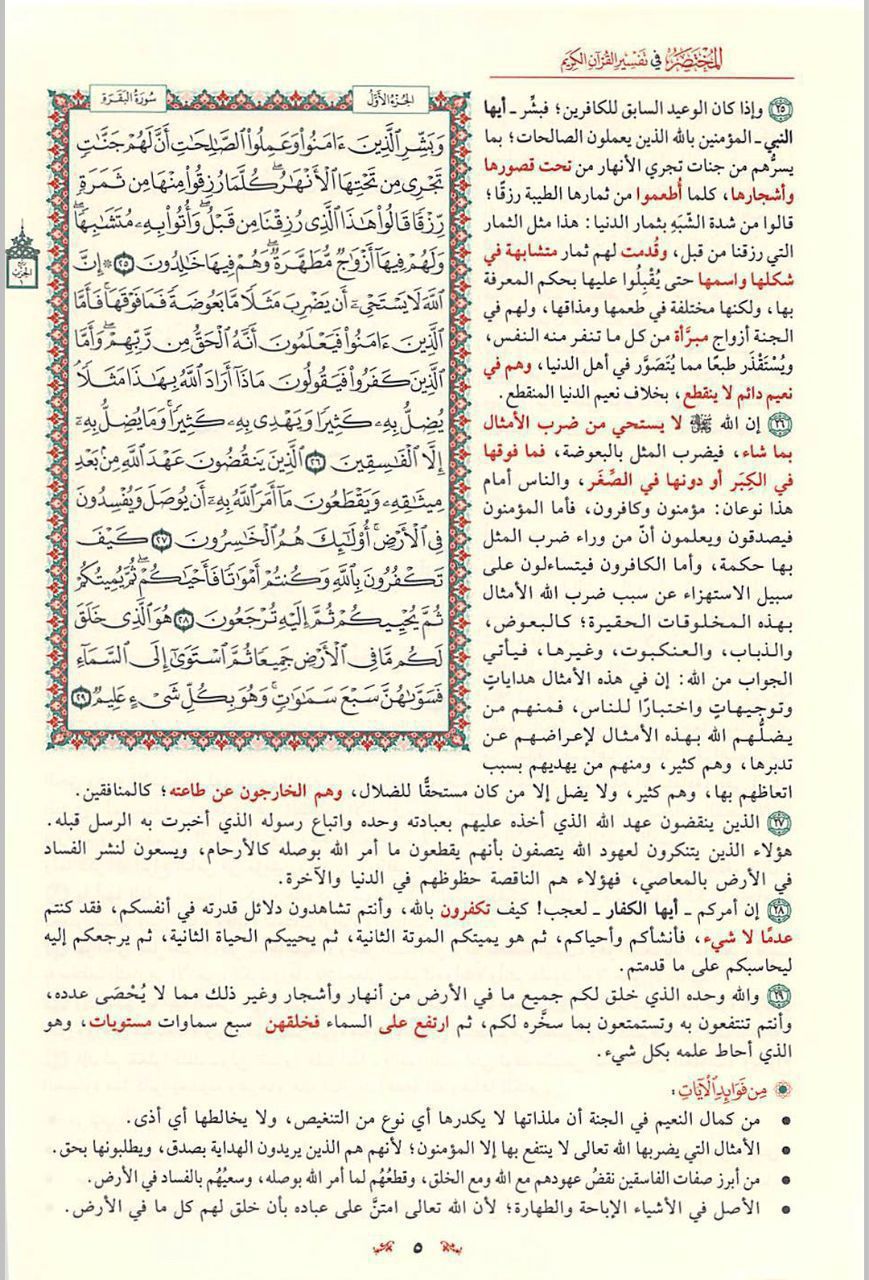 المختصر في تفسير القرآن الكريم
الجزء الأول
سورة البقرة
وَبَشِّرِ ٱلَّذِينَ ءَامَنُوا۟ وَعَمِلُوا۟ ٱلصَّٰلِحَٰتِ أَنَّ لَهُمْ جَنَّٰتٍ
تَجْرِى مِن تَحْتِهَا ٱلْأَنْهَٰرُ ۖ كُلَّمَا رُزِقُوا۟ مِنْهَا مِن ثَمَرَةٍ
رِّزْقًا قَالُوا۟ هَٰذَا ٱلَّذِى رُزِقْنَا مِن قَبْلُ ۖ وَأُتُوا۟ بِهِۦ مُتَشَٰبِهًا ۖ
وَلَهُمْ فِيهَآ أَزْوَٰجٌ مُّطَهَّرَةٌ ۖ وَهُمْ فِيهَا خَٰلِدُونَ ٢٥ ۞ إِنَّ
ٱللَّهَ لَا يَسْتَحْىِۦٓ أَن يَضْرِبَ مَثَلًا مَّا بَعُوضَةً فَمَا فَوْقَهَا ۚ فَأَمَّا
ٱلَّذِينَ ءَامَنُوا۟ فَيَعْلَمُونَ أَنَّهُ ٱلْحَقُّ مِن رَّبِّهِمْ ۖ وَأَمَّا
ٱلَّذِينَ كَفَرُوا۟ فَيَقُولُونَ مَاذَآ أَرَادَ ٱللَّهُ بِهَٰذَا مَثَلًا ۘ
يُضِلُّ بِهِۦ كَثِيرًا وَيَهْدِى بِهِۦ كَثِيرًا ۚ وَمَا يُضِلُّ بِهِۦٓ
إِلَّا ٱلْفَٰسِقِينَ ٢٦ ٱلَّذِينَ يَنقُضُونَ عَهْدَ ٱللَّهِ مِنۢ بَعْدِ
مِيثَٰقِهِۦ وَيَقْطَعُونَ مَآ أَمَرَ ٱللَّهُ بِهِۦٓ أَن يُوصَلَ وَيُفْسِدُونَ
فِى ٱلْأَرْضِ ۚ أُو۟لَٰٓئِكَ هُمُ ٱلْخَٰسِرُونَ ٢٧ كَيْفَ
تَكْفُرُونَ بِٱللَّهِ وَكُنتُمْ أَمْوَٰتًا فَأَحْيَٰكُمْ ۖ ثُمَّ يُمِيتُكُمْ
ثُمَّ يُحْيِيكُمْ ثُمَّ إِلَيْهِ تُرْجَعُونَ ٢٨ هُوَ ٱلَّذِى خَلَقَ
لَكُم مَّا فِى ٱلْأَرْضِ جَمِيعًا ثُمَّ ٱسْتَوَىٰٓ إِلَى ٱلسَّمَآءِ
فَسَوَّىٰهُنَّ سَبْعَ سَمَٰوَٰتٍ ۚ وَهُوَ بِكُلِّ شَىْءٍ عَلِيمٌ ٢٩
٢٥ وإذا كان الوعيد السابق للكافرين؛ فبشِّر ـ أيها
النبي ـ المؤمنين بالله الذين يعملون الصالحات؛ بما
يسرُّهم من جنات تجري الأنهار من تحت قصورها
وأشجارها، كلما أُطعموا من ثمارها الطيبة رزقًا؛
قالوا من شدة الشَّبَهِ بثمار الدنيا: هذا مثل الثمار
التي رزقنا من قبل، وقُدمت لهم ثمار متشابهة في
شكلها واسمها حتى يُقْبِلُوا عليها بحكم المعرفة
بها، ولكنها مختلفة في طعمها ومذاقها، ولهم في
الجنة أزواج مبرَّأة من كل ما تنفر منه النفس،
ويُسْتَقْذَر طبعًا مما يُتَصَوَّر في أهل الدنيا، وهم في
نعيم دائم لا ينقطع، بخلاف نعيم الدنيا المنقطع.
٢٦ إن الله ﷻ لا يستحي من ضرب الأمثال
بما شاء، فيضرب المثل بالبعوضة، فما فوقها
في الكِبَر أو دونها في الصِّغَر، والناس أمام
هذا نوعان: مؤمنون وكافرون، فأما المؤمنون
فيصدقون ويعلمون أنّ من وراء ضرب المثل
بها حكمة، وأما الكافرون فيتساءلون على
سبيل الاستهزاء عن سبب ضرب الله الأمثال
بهذه المخلوقات الحقيرة؛ كالبعوض،
والذباب، والعنكبوت، وغيرها، فيأتي
الجواب من الله: إن في هذه الأمثال هداياتٍ
وتوجيهاتٍ واختبارًا للناس، فمنهم من
يضلُّهم الله بهذه الأمثال لإعراضهم عن
تدبرها، وهم كثير، ومنهم من يهديهم بسبب
اتعاظهم بها، وهم كثير، ولا يضل إلا من كان مستحقًّا للضلال، وهم الخارجون عن طاعته؛ كالمنافقين.
٢٧ الذين ينقضون عهد الله الذي أخذه عليهم بعبادته وحده واتباع رسوله الذي أخبرت به الرسل قبله.
هؤلاء الذين يتنكرون لعهود الله يتصفون بأنهم يقطعون ما أمر الله بوصله كالأرحام، ويسعون لنشر الفساد
في الأرض بالمعاصي، فهؤلاء هم الناقصة حظوظهم في الدنيا والآخرة.
٢٨ إن أمركم ـ أيها الكفار ـ لعجب! كيف تكفرون بالله، وأنتم تشاهدون دلائل قدرته في أنفسكم، فقد كنتم
عدمًا لا شيء، فأنشأكم وأحياكم، ثم هو يميتكم الموتة الثانية، ثم يحييكم الحياة الثانية، ثم يرجعكم إليه
ليحاسبكم على ما قدمتم.
٢٩ والله وحده الذي خلق لكم جميع ما في الأرض من أنهار وأشجار وغير ذلك مما لا يُحْصَى عدده،
وأنتم تنتفعون به وتستمتعون بما سخَّره لكم، ثم ارتفع على السماء فخلقهن سبع سماوات مستويات، وهو
الذي أحاط علمه بكل شيء.
من فوائد الآيات:
• من كمال النعيم في الجنة أن ملذاتها لا يكدرها أي نوع من التنغيص، ولا يخالطها أي أذى.
• الأمثال التي يضربها الله تعالى لا ينتفع بها إلا المؤمنون؛ لأنهم هم الذين يريدون الهداية بصدق، ويطلبونها بحق.
• من أبرز صفات الفاسقين نقضُ عهودهم مع الله ومع الخلق، وقطعُهُم لما أمر الله بوصله، وسعيُهُم بالفساد في الأرض.
• الأصل في الأشياء الإباحة والطهارة؛ لأن الله تعالى امتنَّ على عباده بأن خلق لهم كل ما في الأرض.
٥